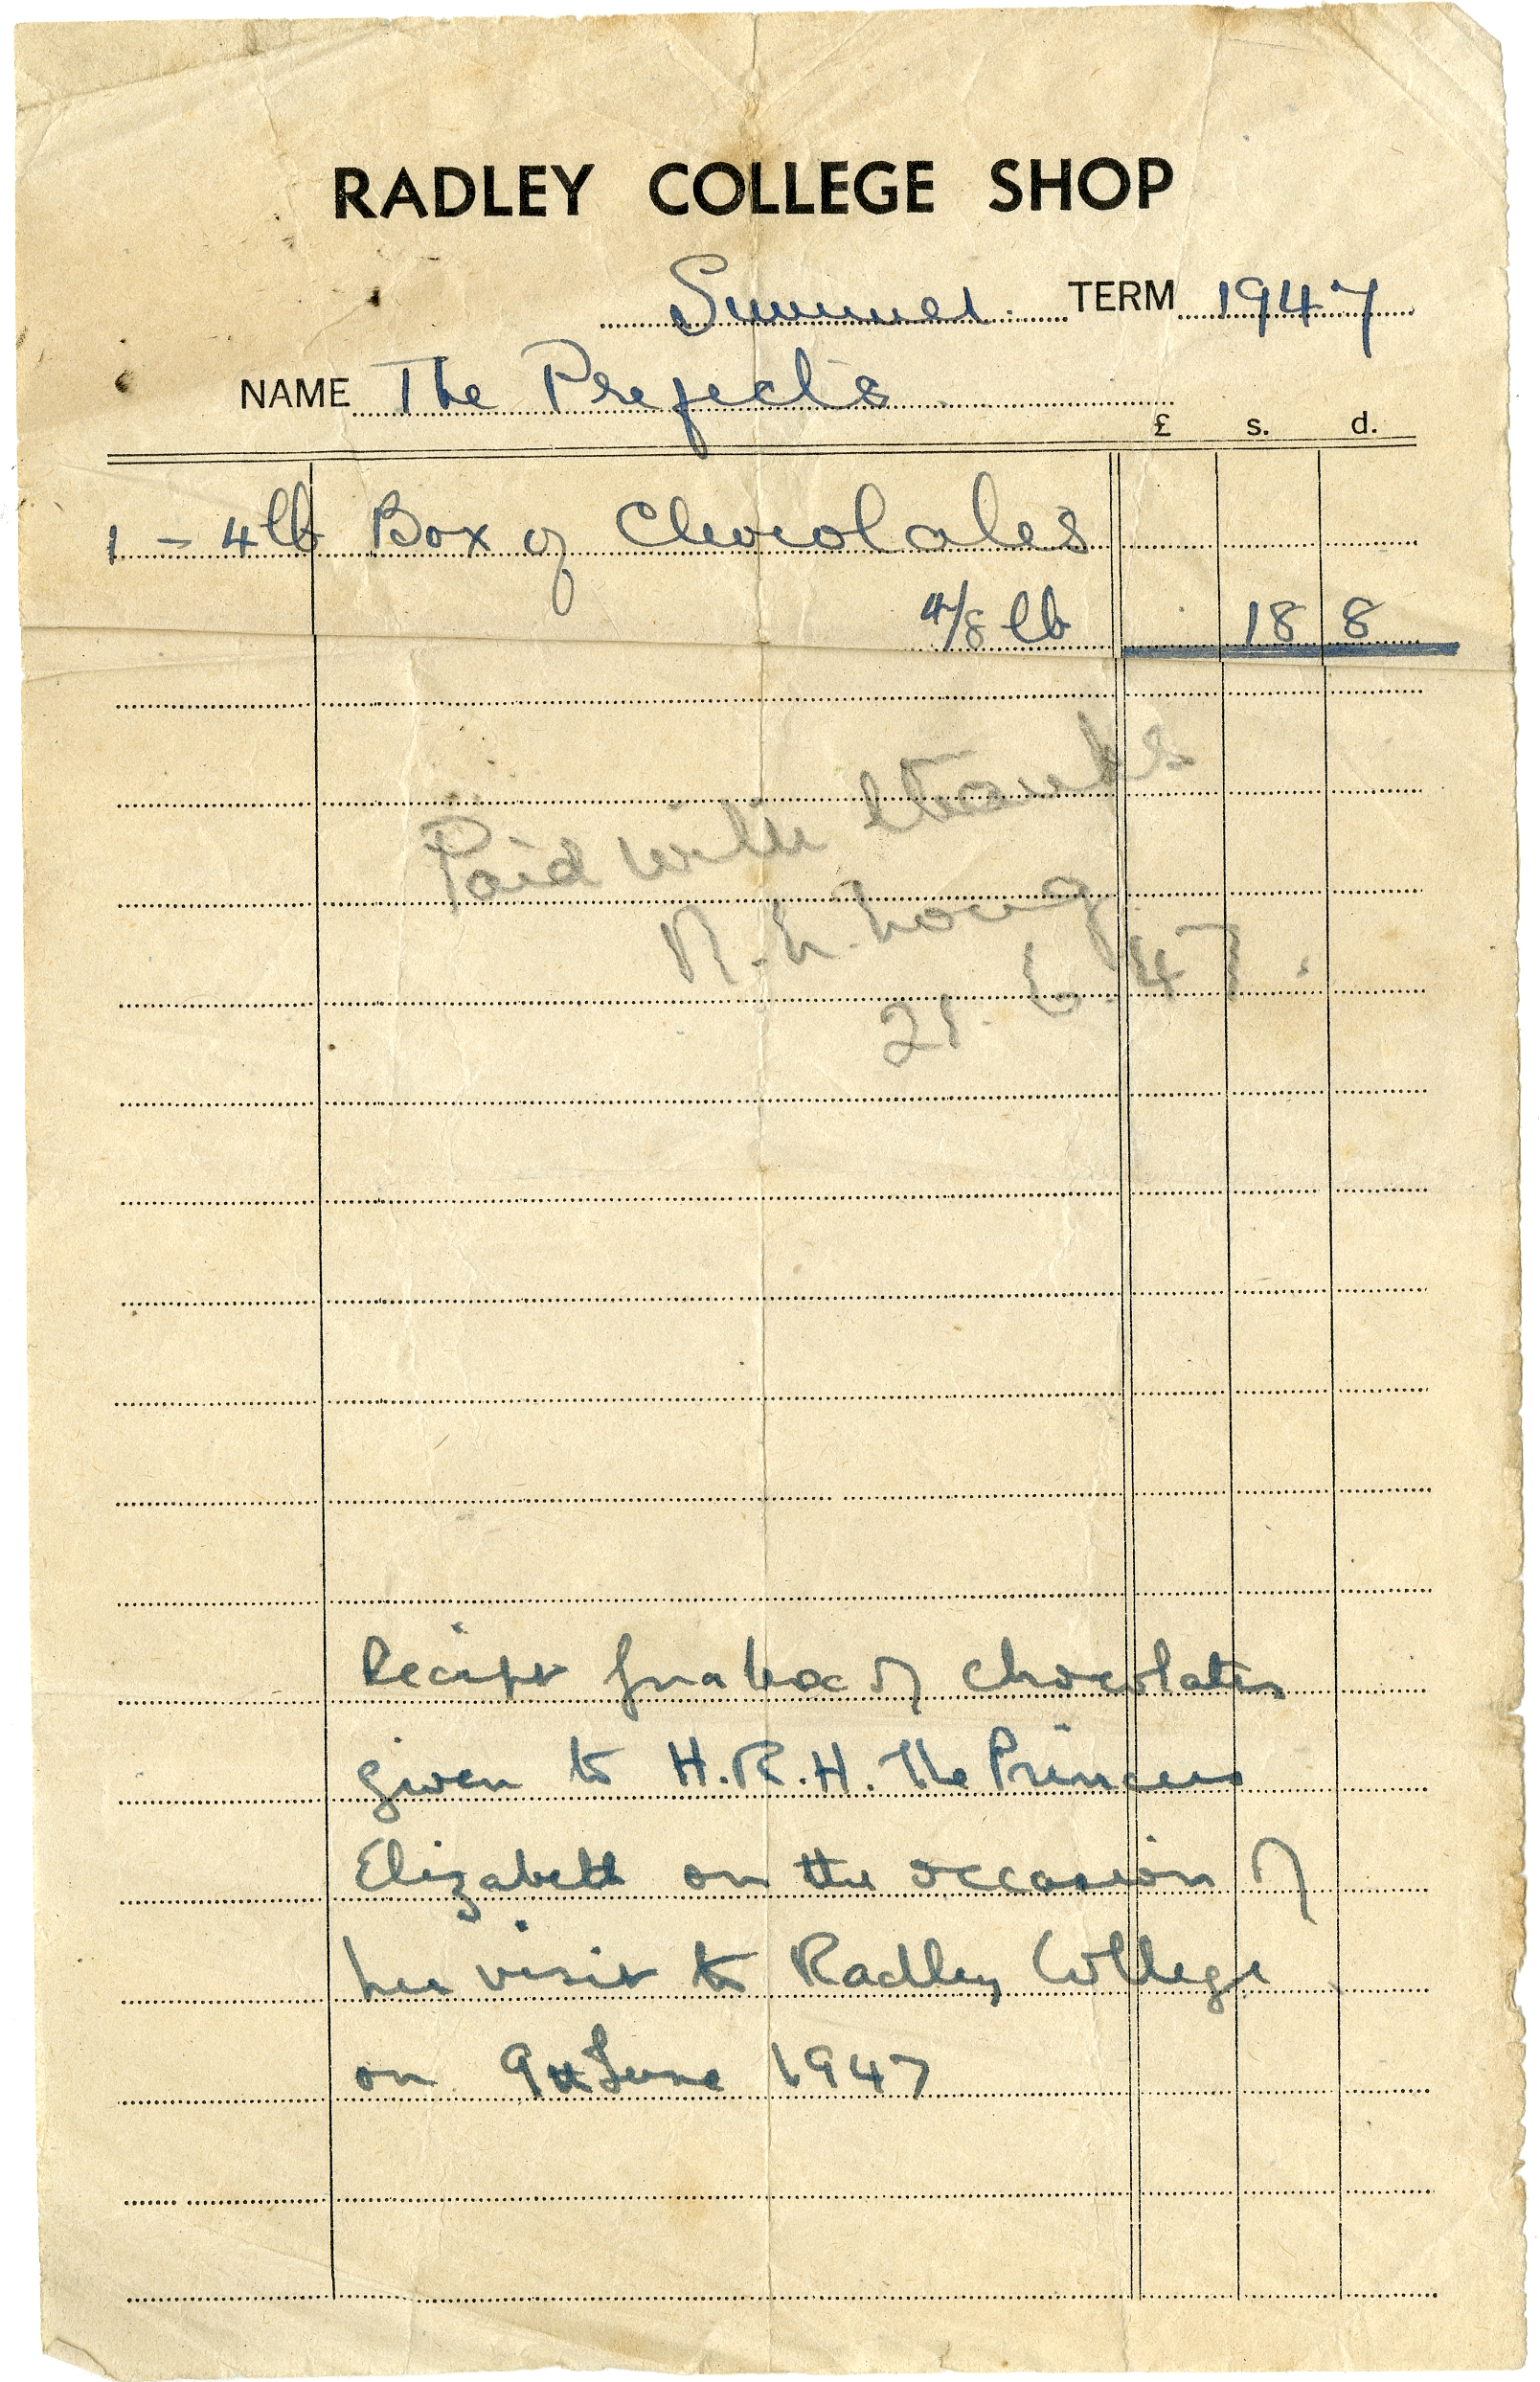 RADLEY COLLEGE SHOP
Summer TERM 1947
NAME The Prefects
£ s. d.
1 - 4lb Box of Chocolates
4/8 lb 18 8
Paid with thanks
21. 6. 47.
Receipt for a box of chocolates
given to H.R.H. The Princess
Elizabeth on the occasion of
her visit to Radley College
on 9th June 1947